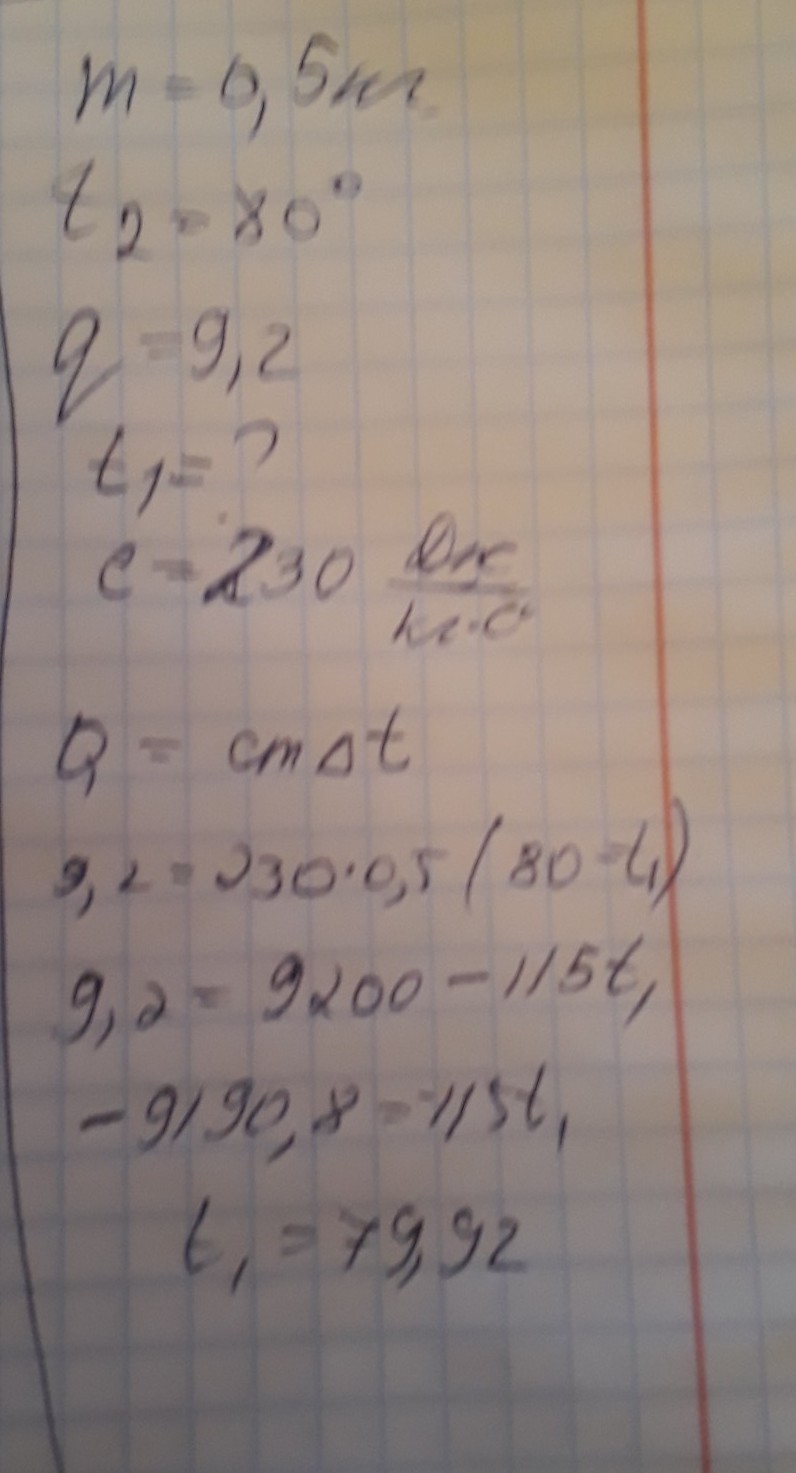 m = 0,5 кг
t₂ = 80°
q = 9,2
t₁ = ?
c = 230 Дж/кг·c°
Q = cm∆t
9,2 = 230·0,5 (80 - t₁)
9,2 = 9200 - 115t₁
-9190,8 = -115t₁
t₁ = 79,92